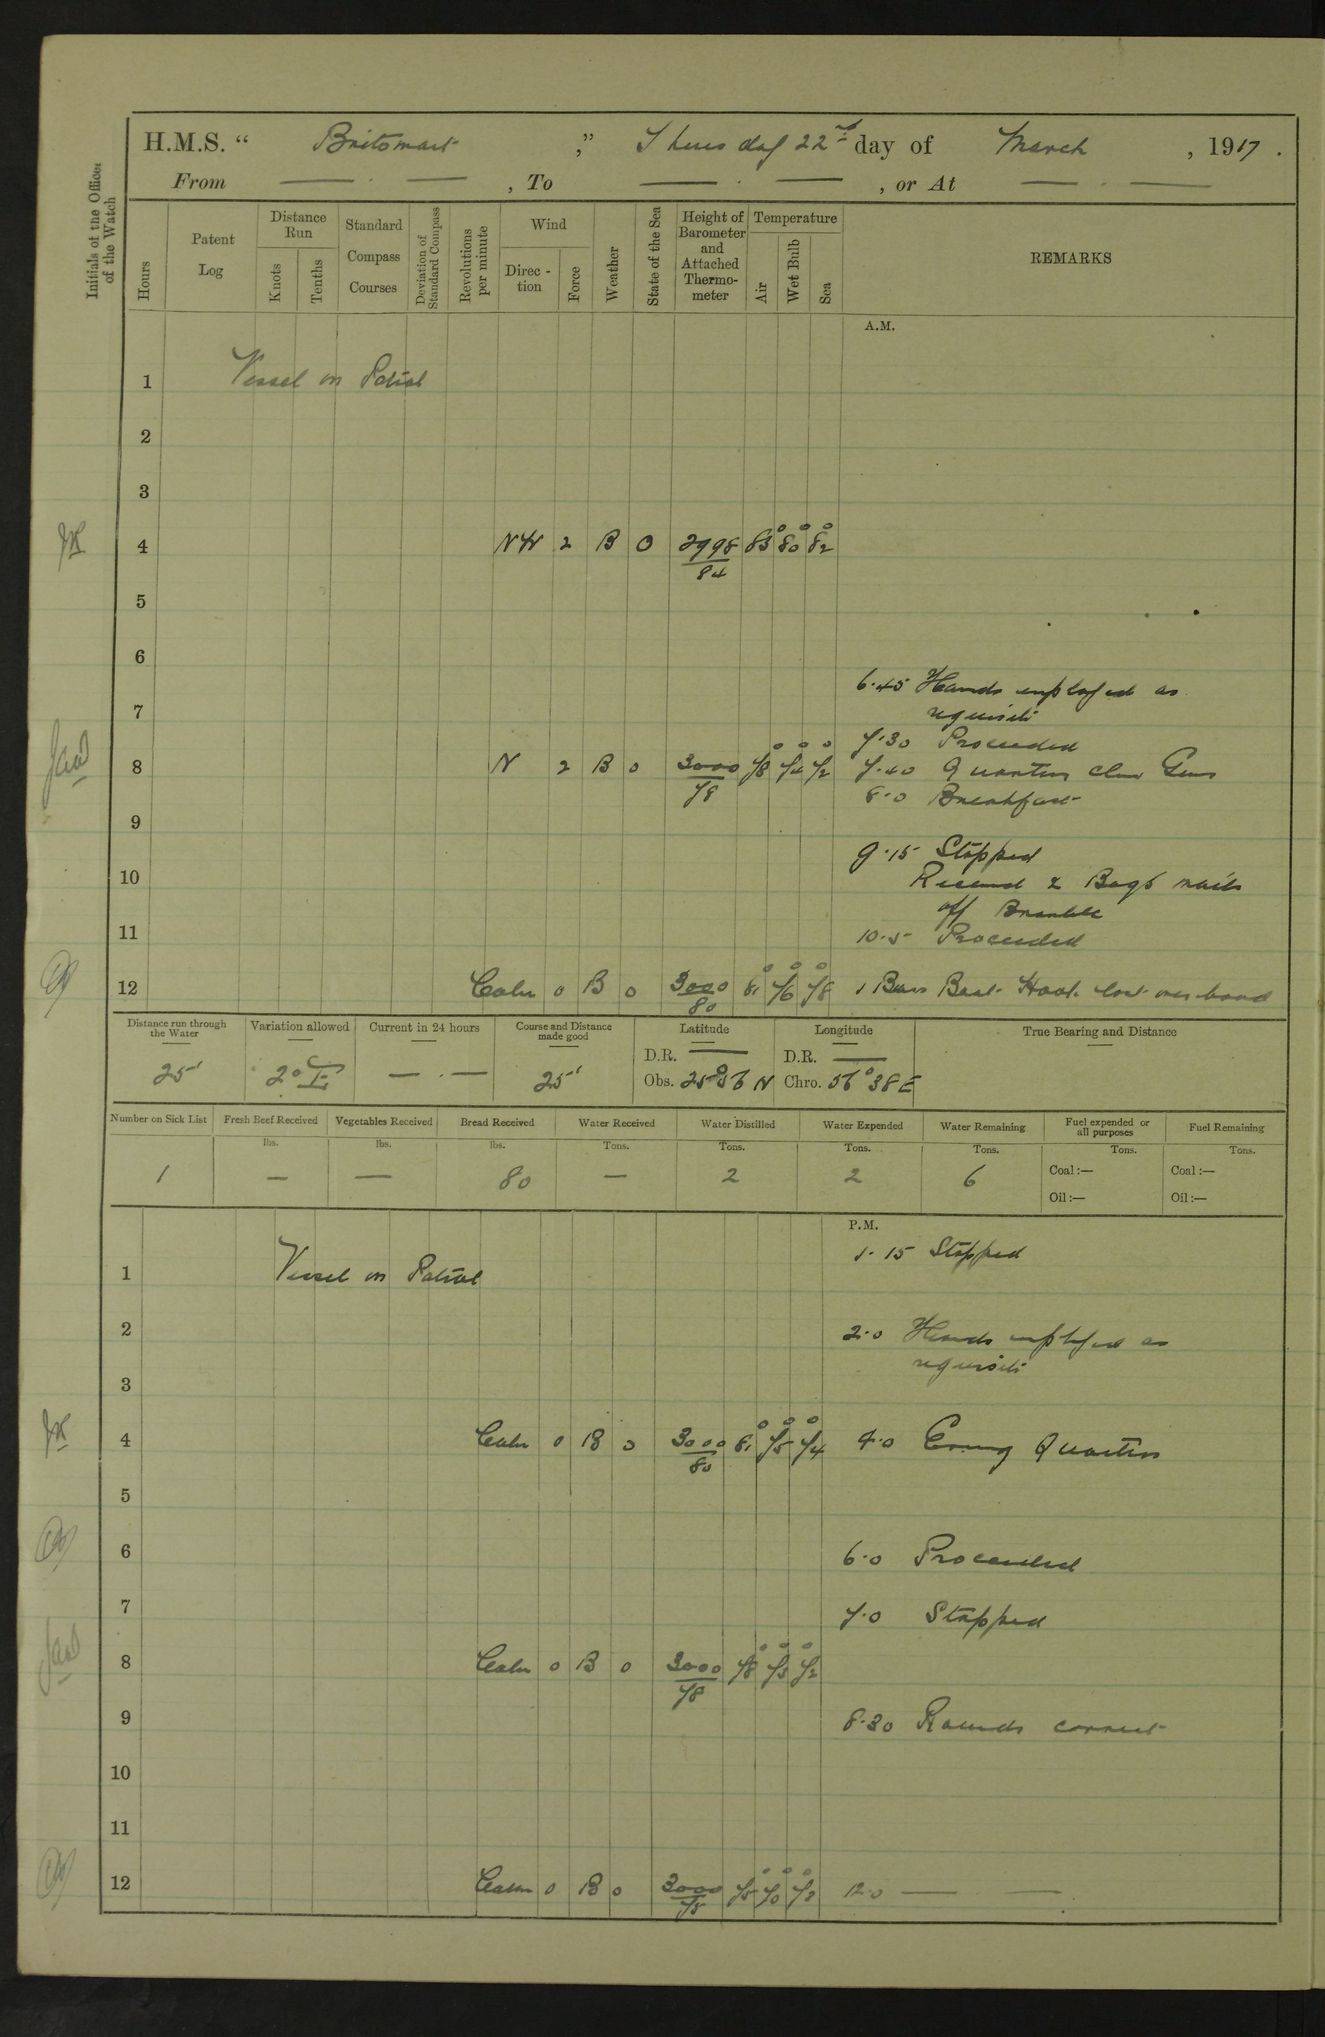 H.M.S. “ Britomart ,” Thursday 22nd day of March , 1917 .
From — . — , To — . — , or At — . —
Initials of the Officer of the Watch
Hours
Patent Log
Distance Run
Knots
Tenths
Standard Compass Courses
Deviation of Standard Compass
Revolutions per minute
Wind
Direc - tion
Force
Weather
State of the Sea
Height of Barometer and Attached Thermo- meter
Temperature
Air
Wet Bulb
Sea
REMARKS
A.M.
1 Vessel on Patrol
2
3
4 NW 2 B 0 2998/84 83° 80° 82°
5
6
6.45 Hands employed as
7 requisite
7.30 Proceeded
8 N 2 B 0 3000/78 78° 74° 72° 7.40 Quarters clean Guns
8.0 Breakfast
9
9.15 Stopped
10 Received 2 Bags mails
off Bramble
11 10.5 Proceeded
12 Calm 0 B 0 3000/80 81° 76° 78° 1 Brass Boat Hook lost overboard
Distance run through the Water
Variation allowed
Current in 24 hours
Course and Distance made good
Latitude
Longitude
True Bearing and Distance
D.R. — D.R. —
25' 2° E — . — 25' Obs. 25°56 N Chro. 56°38 E
Number on Sick List
Fresh Beef Received
Vegetables Received
Bread Received
Water Received
Water Distilled
Water Expended
Water Remaining
Fuel expended or all purposes
Fuel Remaining
lbs. lbs. lbs. Tons. Tons. Tons. Tons. Tons. Tons.
1 — — 80 — 2 2 6 Coal :— Coal :—
Oil :— Oil :—
P.M.
1.15 Stopped
1 Vessel on Patrol
2 2.0 Hands employed as
requisite
3
4 Calm 0 B 0 3000/80 81° 75° 74° 4.0 Evening Quarters
5
6 6.0 Proceeded
7 7.0 Stopped
8 Calm 0 B 0 3000/78 78° 73° 72°
9 8.30 Rounds correct
10
11
12 Calm 0 B 0 3000/78 75° 70° 72° 12.0 — —